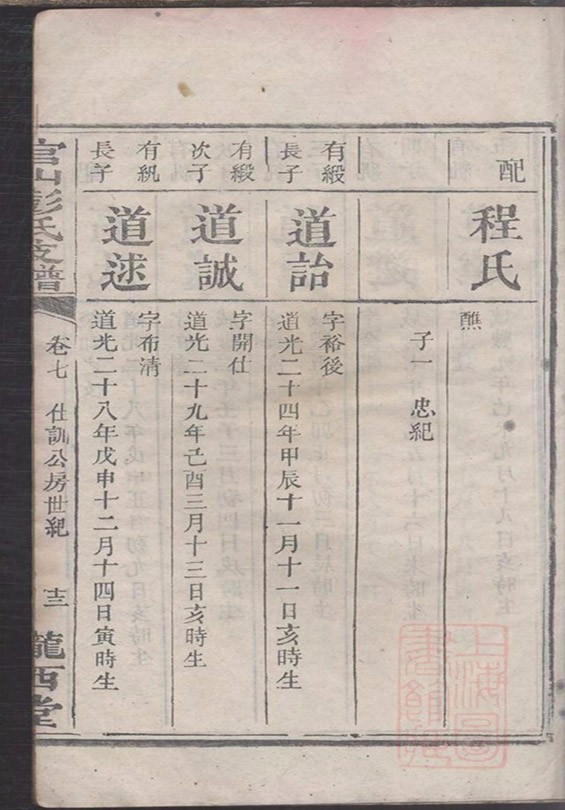 配
程氏
醮
子一 忠紀
有緞
長子
道詒
字裕後
道光二十四年甲辰十一月十一日亥時生
有緞
次子
道誠
字開仕
道光二十九年己酉三月十三日亥時生
有䋚
長子
道述
字布清
道光二十八年戊申十二月十四日寅時生
官山彭氏支譜
卷七 仕訓公房世紀
隴西堂
上海圖書館藏